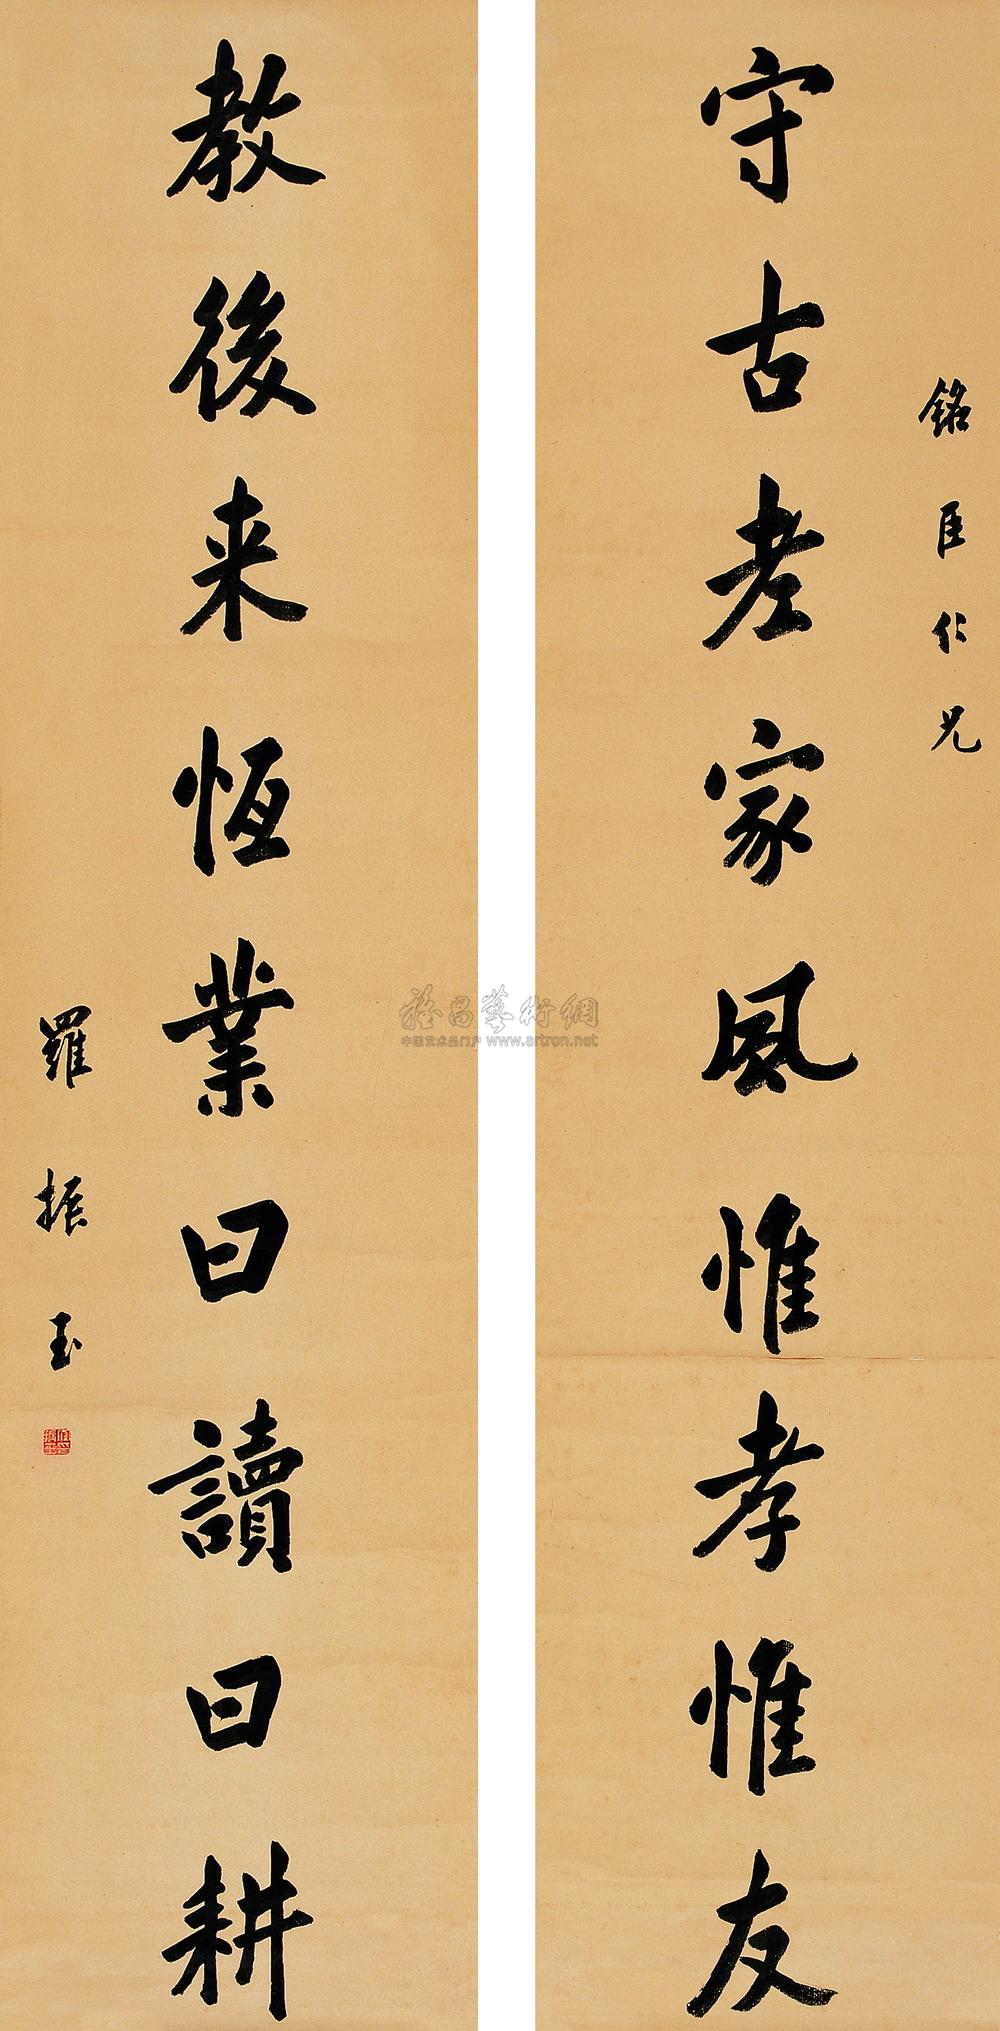 銘臣仁兄
守古老家風惟孝惟友
教後来恆業曰讀曰耕
羅振玉
雅昌藝術網
中国艺术品门户 www.artron.net